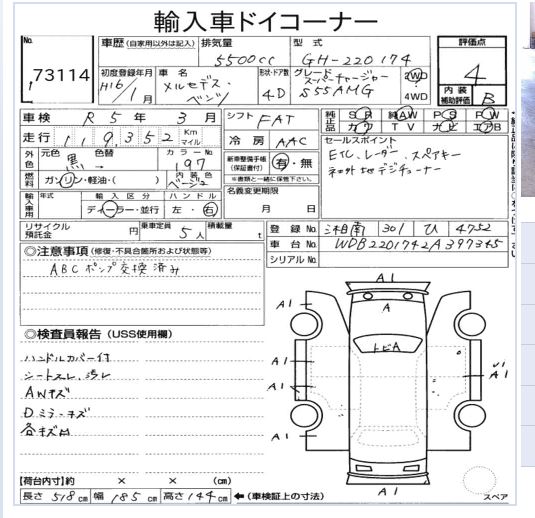 輸入車ドイコーナー
No.
73114
車歴 (自家用以外は記入) 排気量 型式
5500cc GH-220174
評価点
4
内装補助評価 B
初度登録年月 車名 形状・ドア数 グレード
H16/1月 メルセデス・ベンツ 4D スーパーチャージャー S55AMG
2WD
4WD
車検 R5年 3月
シフト FAT
純正品 SR AW PS PW
カワ TV ナビ エアB
走行 119,352 Km マイル
冷房 AAC
セールスポイント
ETC、レーダー、スペアキー
外色 元色 黒 → 色替 カラーNo. 197
新車整備手帳(保証書付) 有・無
※書類と一緒に保管下さい。
燃料 ガソリン・軽油・( ) 内装色 ベージュ
名義変更期限
月 日
輸入車用 年式 輸入区分 ハンドル
ディーラー・並行 左・右
リサイクル預託金 円 乗車定員 5人 積載量 t
登録No. 湘南 301 ひ 4752
車台No. WDB2201742A397345
シリアルNo.
◎注意事項 (修復・不具合箇所および状態等)
ABCポンプ交換済み
◎検査員報告 (USS使用欄)
ハンドルカバー付
シートスレ、汚レ
AWキズ
Dミラーキズ
各キズ凹
A1
A
A1
トビA
A1
A1
A1
A1
A1
【荷台内寸】約 × × (cm)
長さ 518cm 幅 185cm 高さ 144cm ←(車検証上の寸法)
スペア